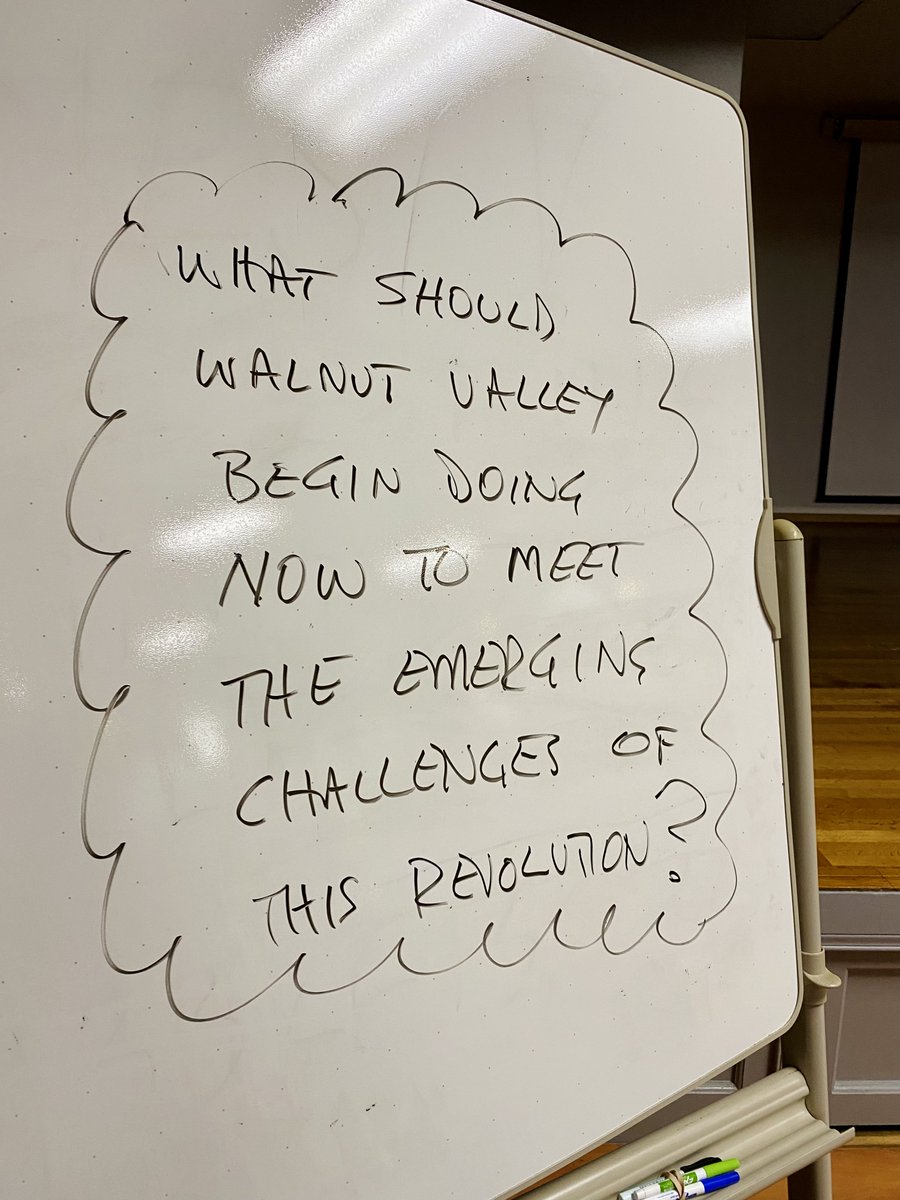 WHAT SHOULD
WALNUT VALLEY
BEGIN DOING
NOW TO MEET
THE EMERGING
CHALLENGES OF
THIS REVOLUTION?